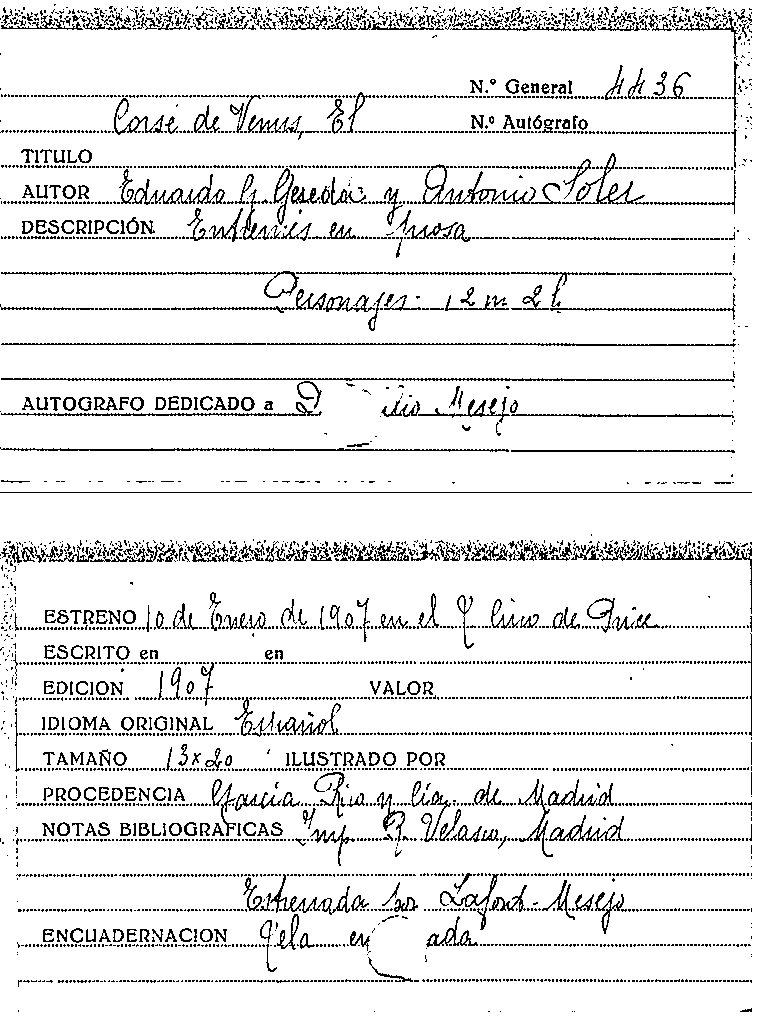 N.º General 4436
Corsé de Venus, El N.º Autógrafo
TITULO
AUTOR Eduardo G. Gereda y Antonio Soler
DESCRIPCIÓN Entremés en prosa
Personajes - 12 m 2 h
AUTOGRAFO DEDICADO a D Mesejo
ESTRENO 10 de Enero de 1907 en el T Circo de Price
ESCRITO en en
EDICION 1907 VALOR
IDIOMA ORIGINAL Español
TAMAÑO 13x20 ILUSTRADO POR
PROCEDENCIA García Rico y Cía. de Madrid
NOTAS BIBLIOGRAFICAS Imp R. Velasco, Madrid
Estrenada por Lafont - Mesejo
ENCUADERNACION Tela en ada